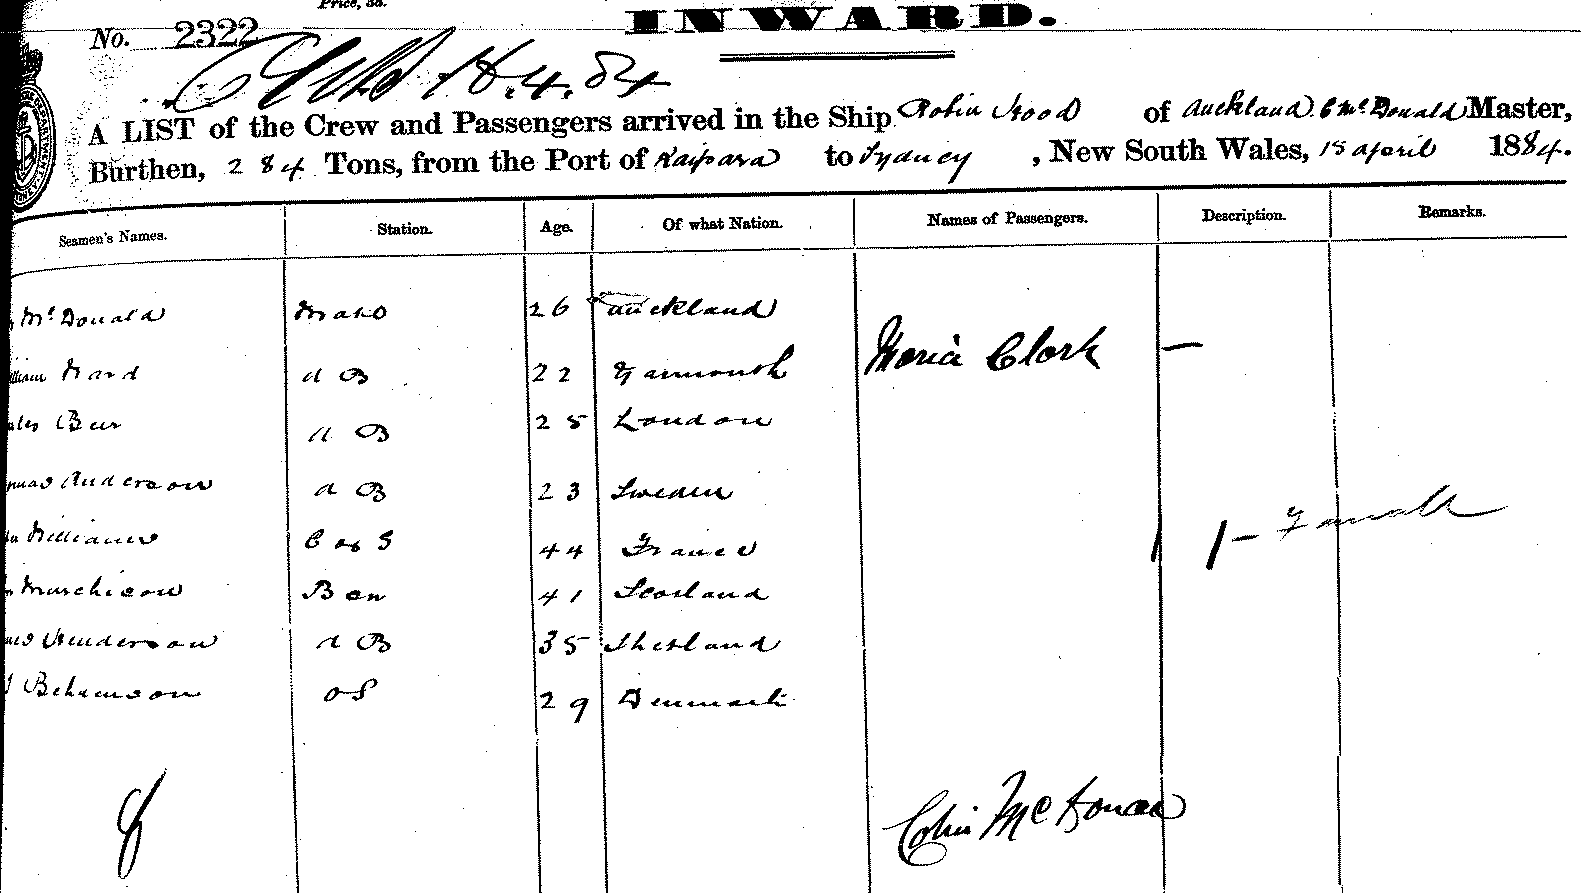 Price, 3d.
INWARD.
No. 2322
18.4.84
A LIST of the Crew and Passengers arrived in the Ship Robin Hood of Auckland C McDonald Master,
Burthen, 284 Tons, from the Port of Kaipara to Sydney, New South Wales, 15 April 1884.
Seamen's Names. Station. Age. Of what Nation. Names of Passengers. Description. Remarks.
McDonald Mate 26 Auckland
Maria Clark —
William Ward A B 22 Yarmouth
Bur A B 25 London
Anderson A B 23 Sweden
1 1 – Female
Williams C & S 44 France
Murchison Bsn 41 Scotland
Henderson A B 35 Shetland
OS 29 Denmark
8
Colin McDonald